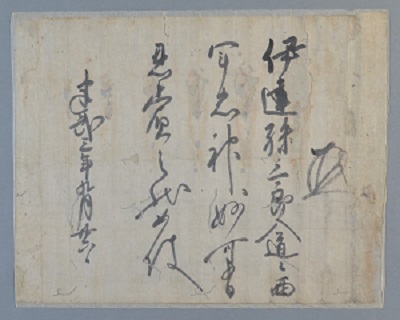 伊達孫三郎入道々西
軍忠神妙可有
恩賞之状如件
建武三年九月廿